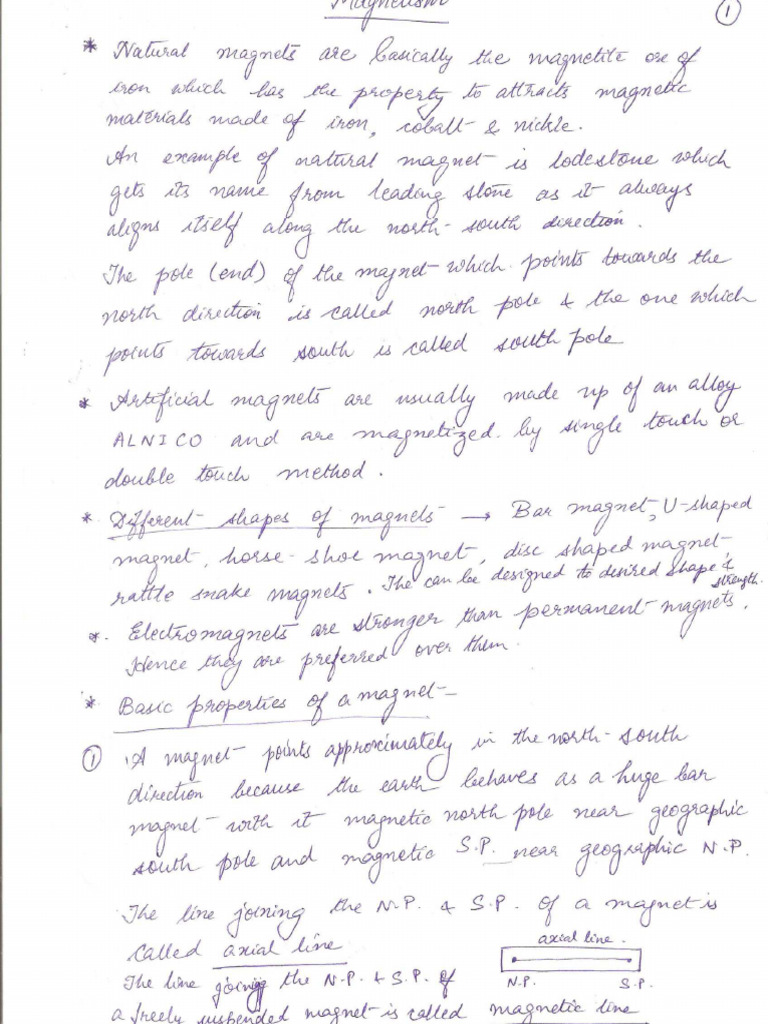 Magnetism
1
* Natural magnets are basically the magnetite ore of
iron which has the property to attracts magnetic
materials made of iron, cobalt & nickle.
An example of natural magnet is lodestone which
gets its name from leading stone as it always
aligns itself along the north-south direction.
The pole (end) of the magnet which points towards the
north direction is called north pole & the one which
points towards south is called south pole
* Artificial magnets are usually made up of an alloy
ALNICO and are magnetized by single touch or
double touch method.
* Different shapes of magnets → Bar magnet, U-shaped
magnet, horse-shoe magnet, disc shaped magnet,
rattle snake magnets. The can be designed to desired shape & strength.
* Electromagnets are stronger than permanent magnets.
Hence they are preferred over them.
* Basic properties of a magnet -
① A magnet points approximately in the north-south
direction because the earth behaves as a huge bar
magnet with it magnetic north pole near geographic
south pole and magnetic S.P. near geographic N.P.
The line joining the N.P. & S.P. of a magnet is
called axial line
axial line.
N.P. S.P.
The line joining the N.P. & S.P. of
a freely suspended magnet is called magnetic line